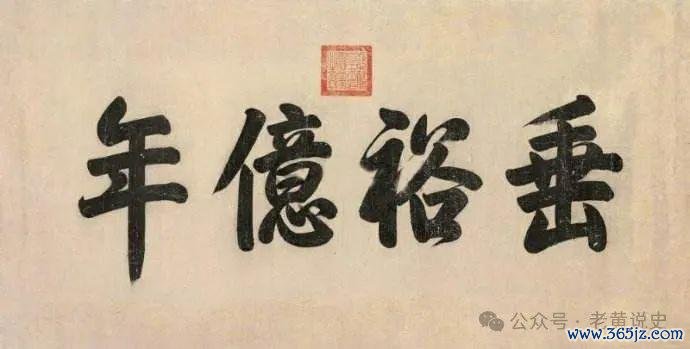 垂裕億年
公众号·老黄说史
www.365jz.com